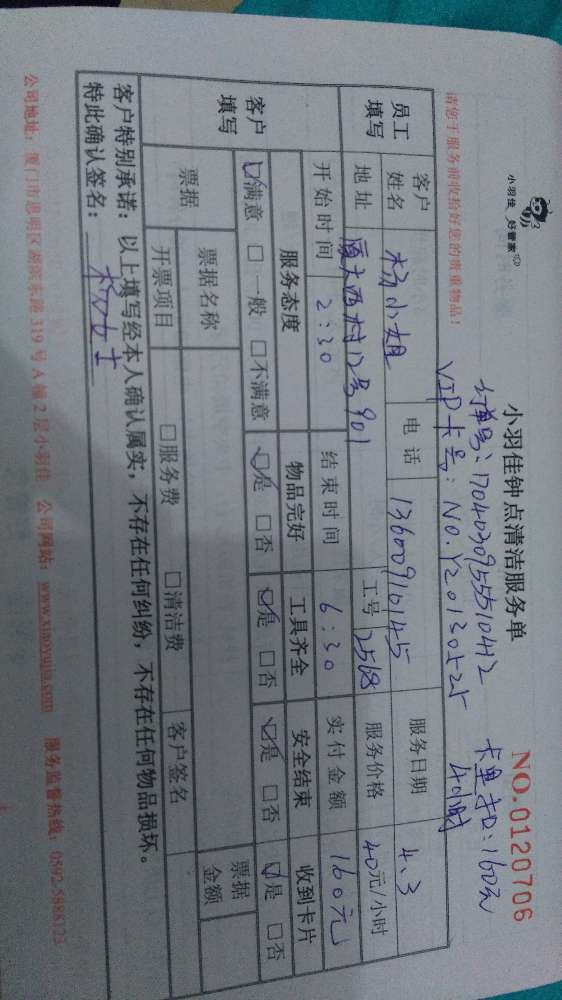 小羽佳 好管家
小羽佳钟点清洁服务单
NO.0120706
订单号:170403095551042
卡里扣:160元
VIP卡号:NO.Y20130525
4小时
请您于服务前收拾好您的贵重物品!
员工填写 客户姓名 杨小姐 电话 13600910145 服务日期 4.3
地址 厦大西村12号901 工号 2568 服务价格 40元/小时
客户填写 开始时间 2:30 结束时间 6:30 实付金额 160元
服务态度 物品完好 工具齐全 安全结束 收到卡片
☑满意 □一般 □不满意 ☑是 □否 ☑是 □否 ☑是 □否 ☑是 □否
票据 票据名称 票据金额
开票项目 □服务费 □清洁费 客户签名
客户特别承诺:以上填写经本人确认属实,不存在任何纠纷,不存在任何物品损坏。
特此确认签名:杨女士
公司地址:厦门市思明区湖滨东路319号A幢2层小羽佳 公司网站:www.xiaoyujia.com 服务监督热线:0592-5888123